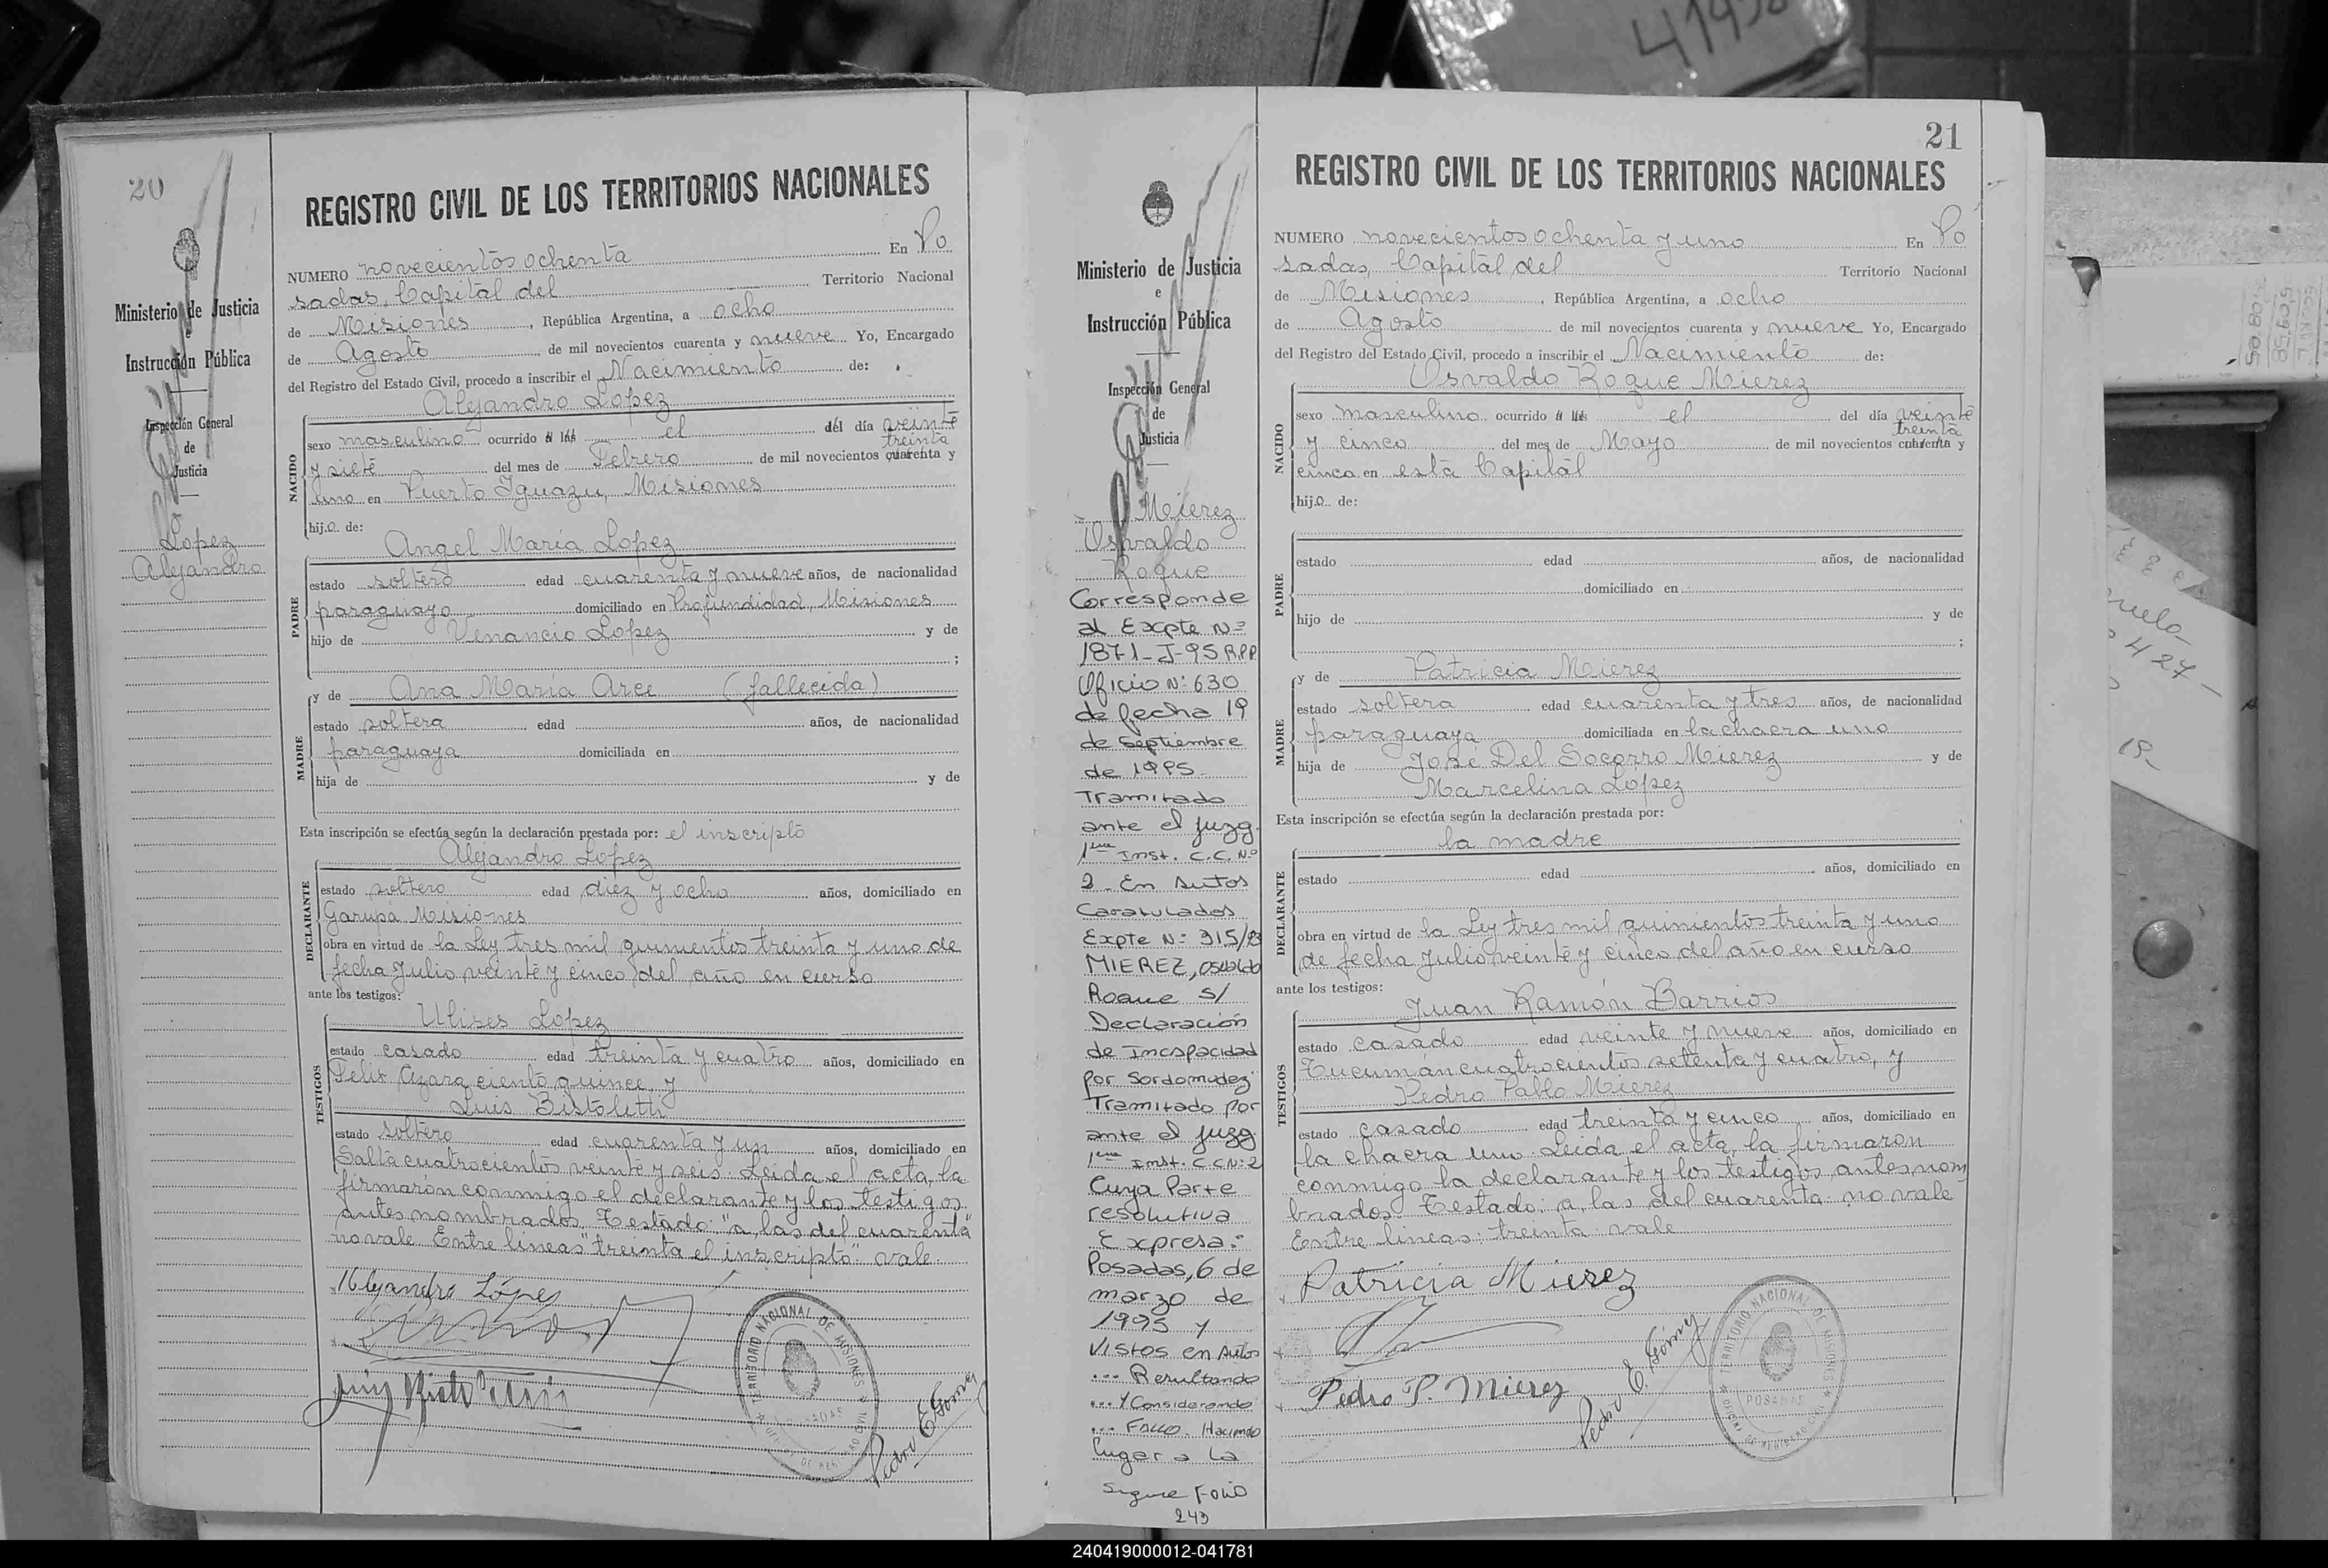 41938
20
Ministerio de Justicia
e
Instrucción Pública
Inspección General
de
Justicia
Lopez
Alejandro
REGISTRO CIVIL DE LOS TERRITORIOS NACIONALES
NUMERO novecientos ochenta En Po
sadas, Capital del Territorio Nacional
de Misiones, República Argentina, a ocho
de Agosto de mil novecientos cuarenta y nueve Yo, Encargado
del Registro del Estado Civil, procedo a inscribir el Nacimiento de:
Alejandro Lopez
NACIDO
sexo masculino ocurrido a las el del día veinte
treinta
y siete del mes de Febrero de mil novecientos cuarenta y
uno en Puerto Iguazu, Misiones
hijo de:
PADRE
Angel María Lopez
estado soltero edad cuarenta y nueve años, de nacionalidad
paraguayo domiciliado en Profundidad, Misiones
hijo de Venancio Lopez y de
;
MADRE
y de Ana María Arce (fallecida)
estado soltera edad años, de nacionalidad
paraguaya domiciliada en
hija de y de
Esta inscripción se efectúa según la declaración prestada por: el inscripto
DECLARANTE
Alejandro Lopez
estado soltero edad diez y ocho años, domiciliado en
Garupá Misiones
obra en virtud de la Ley tres mil quinientos treinta y uno de
fecha Julio veinte y cinco del año en curso
ante los testigos:
TESTIGOS
Ulises Lopez
estado casado edad treinta y cuatro años, domiciliado en
Felix Azara ciento quince, y
Luis Bistoletti
estado soltero edad cuarenta y un años, domiciliado en
Salta cuatrocientos veinte y seis. Leida el acta, la
firmarón conmigo el declarante y los testigos
antes nombrados. Testado: "a, las def cuarenta"
no vale. Entre lineas "treinta el inscripto" vale
Alejandro López
TERRITORIO NACIONAL DE MISIONES
POSADAS
OFICINA DE REGISTRO CIVIL
Pedro E. Gómez
21
Ministerio de Justicia
e
Instrucción Pública
Inspección General
de
Justicia
Mierez
Osvaldo
Roque
Corresponde
al Expte Nº
1871-J-95 R.P.P.
Oficio Nº 630
de fecha 19
de Septiembre
de 1995.
Tramitado
ante el juzg.
1era Inst. C.C. Nº
2. En autos
Caratulados
Expte Nº 315/
MIEREZ, Osvaldo
Roque S/
Declaración
de Incapacidad
por Sordomudez
Tramitado por
ante el juzg.
1era Inst. C.C Nº 2
Cuya Parte
resolutiva
Expresa:
Posadas, 6 de
marzo de
1995 y
Vistos en Autos
... Resultando
... Y Considerando
... Fallo. Haciendo
lugar a la
Sigue Folio
243
REGISTRO CIVIL DE LOS TERRITORIOS NACIONALES
NUMERO novecientos ochenta y uno En Po
sadas, Capital del Territorio Nacional
de Misiones, República Argentina, a ocho
de Agosto de mil novecientos cuarenta y nueve Yo, Encargado
del Registro del Estado Civil, procedo a inscribir el Nacimiento de:
Osvaldo Roque Mierez
NACIDO
sexo masculino ocurrido a las el del día veinte
treinta
y cinco del mes de Mayo de mil novecientos cuarenta y
cinco en esta Capital
hijo de:
PADRE
estado edad años, de nacionalidad
domiciliado en
hijo de y de
;
MADRE
y de Patricia Mierez
estado soltera edad cuarenta y tres años, de nacionalidad
paraguaya domiciliada en la chacra uno
hija de José Del Socorro Mierez y de
Marcelina Lopez
Esta inscripción se efectúa según la declaración prestada por:
DECLARANTE
la madre
estado edad años, domiciliado en
obra en virtud de la Ley tres mil quinientos treinta y uno
de fecha Julio veinte y cinco del año en curso
ante los testigos:
TESTIGOS
Juan Ramón Barrios
estado casado edad veinte y nueve años, domiciliado en
Tucumán cuatrocientos setenta y cuatro, y
Pedro Pablo Mierez
estado casado edad treinta y cinco años, domiciliado en
la chacra uno. Leida el acta, la firmaron
conmigo la declarante y los testigos antes nom
brados. Testado: a, las del cuarenta: no vale
Entre lineas: treinta vale
Patricia Mierez
Pedro P. Mierez
Pedro E. Gómez
TERRITORIO NACIONAL DE MISIONES
POSADAS
OFICINA DE REGISTRO CIVIL
427
19-
240419000012-041781